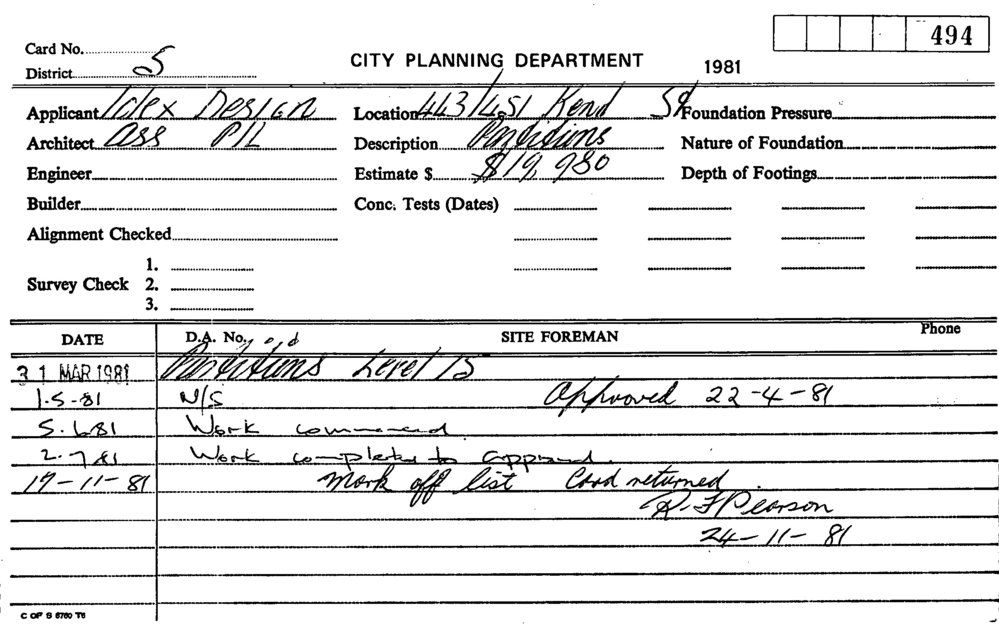 494
Card No.
District S
CITY PLANNING DEPARTMENT 1981
Applicant Idex Design Location 443/451 Kend St Foundation Pressure
Architect Ass P/L Description Partitions Nature of Foundation
Engineer Estimate $ $19,980 Depth of Footings
Builder Conc. Tests (Dates)
Alignment Checked
1.
Survey Check 2.
3.
DATE D.A. No. SITE FOREMAN Phone
31 MAR 1981 Partitions Level 13
1-5-81 N/S Approved 22-4-81
5.6.81 Work commenced
2.7.81 Work completed to approval.
17-11-81 Mark off list Card returned
R. F Pearson
24-11-81
C OF S 6760 T6